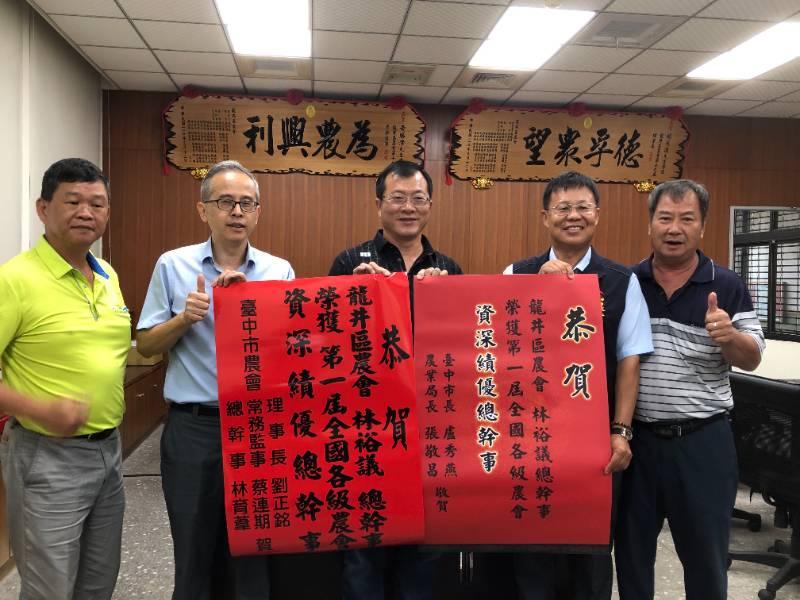 利興農為
望眾孚德
恭賀
龍井區農會 林裕議 總幹事
榮獲 第一屆全國各級農會
資深績優總幹事
臺中市農會
理事長 劉正銘
常務監事 蔡連期
總幹事 林育葦
賀
恭賀
龍井區農會 林裕議總幹事
榮獲第一屆全國各級農會
資深績優總幹事
臺中市長 盧秀燕
農業局長 張敬昌
敬賀